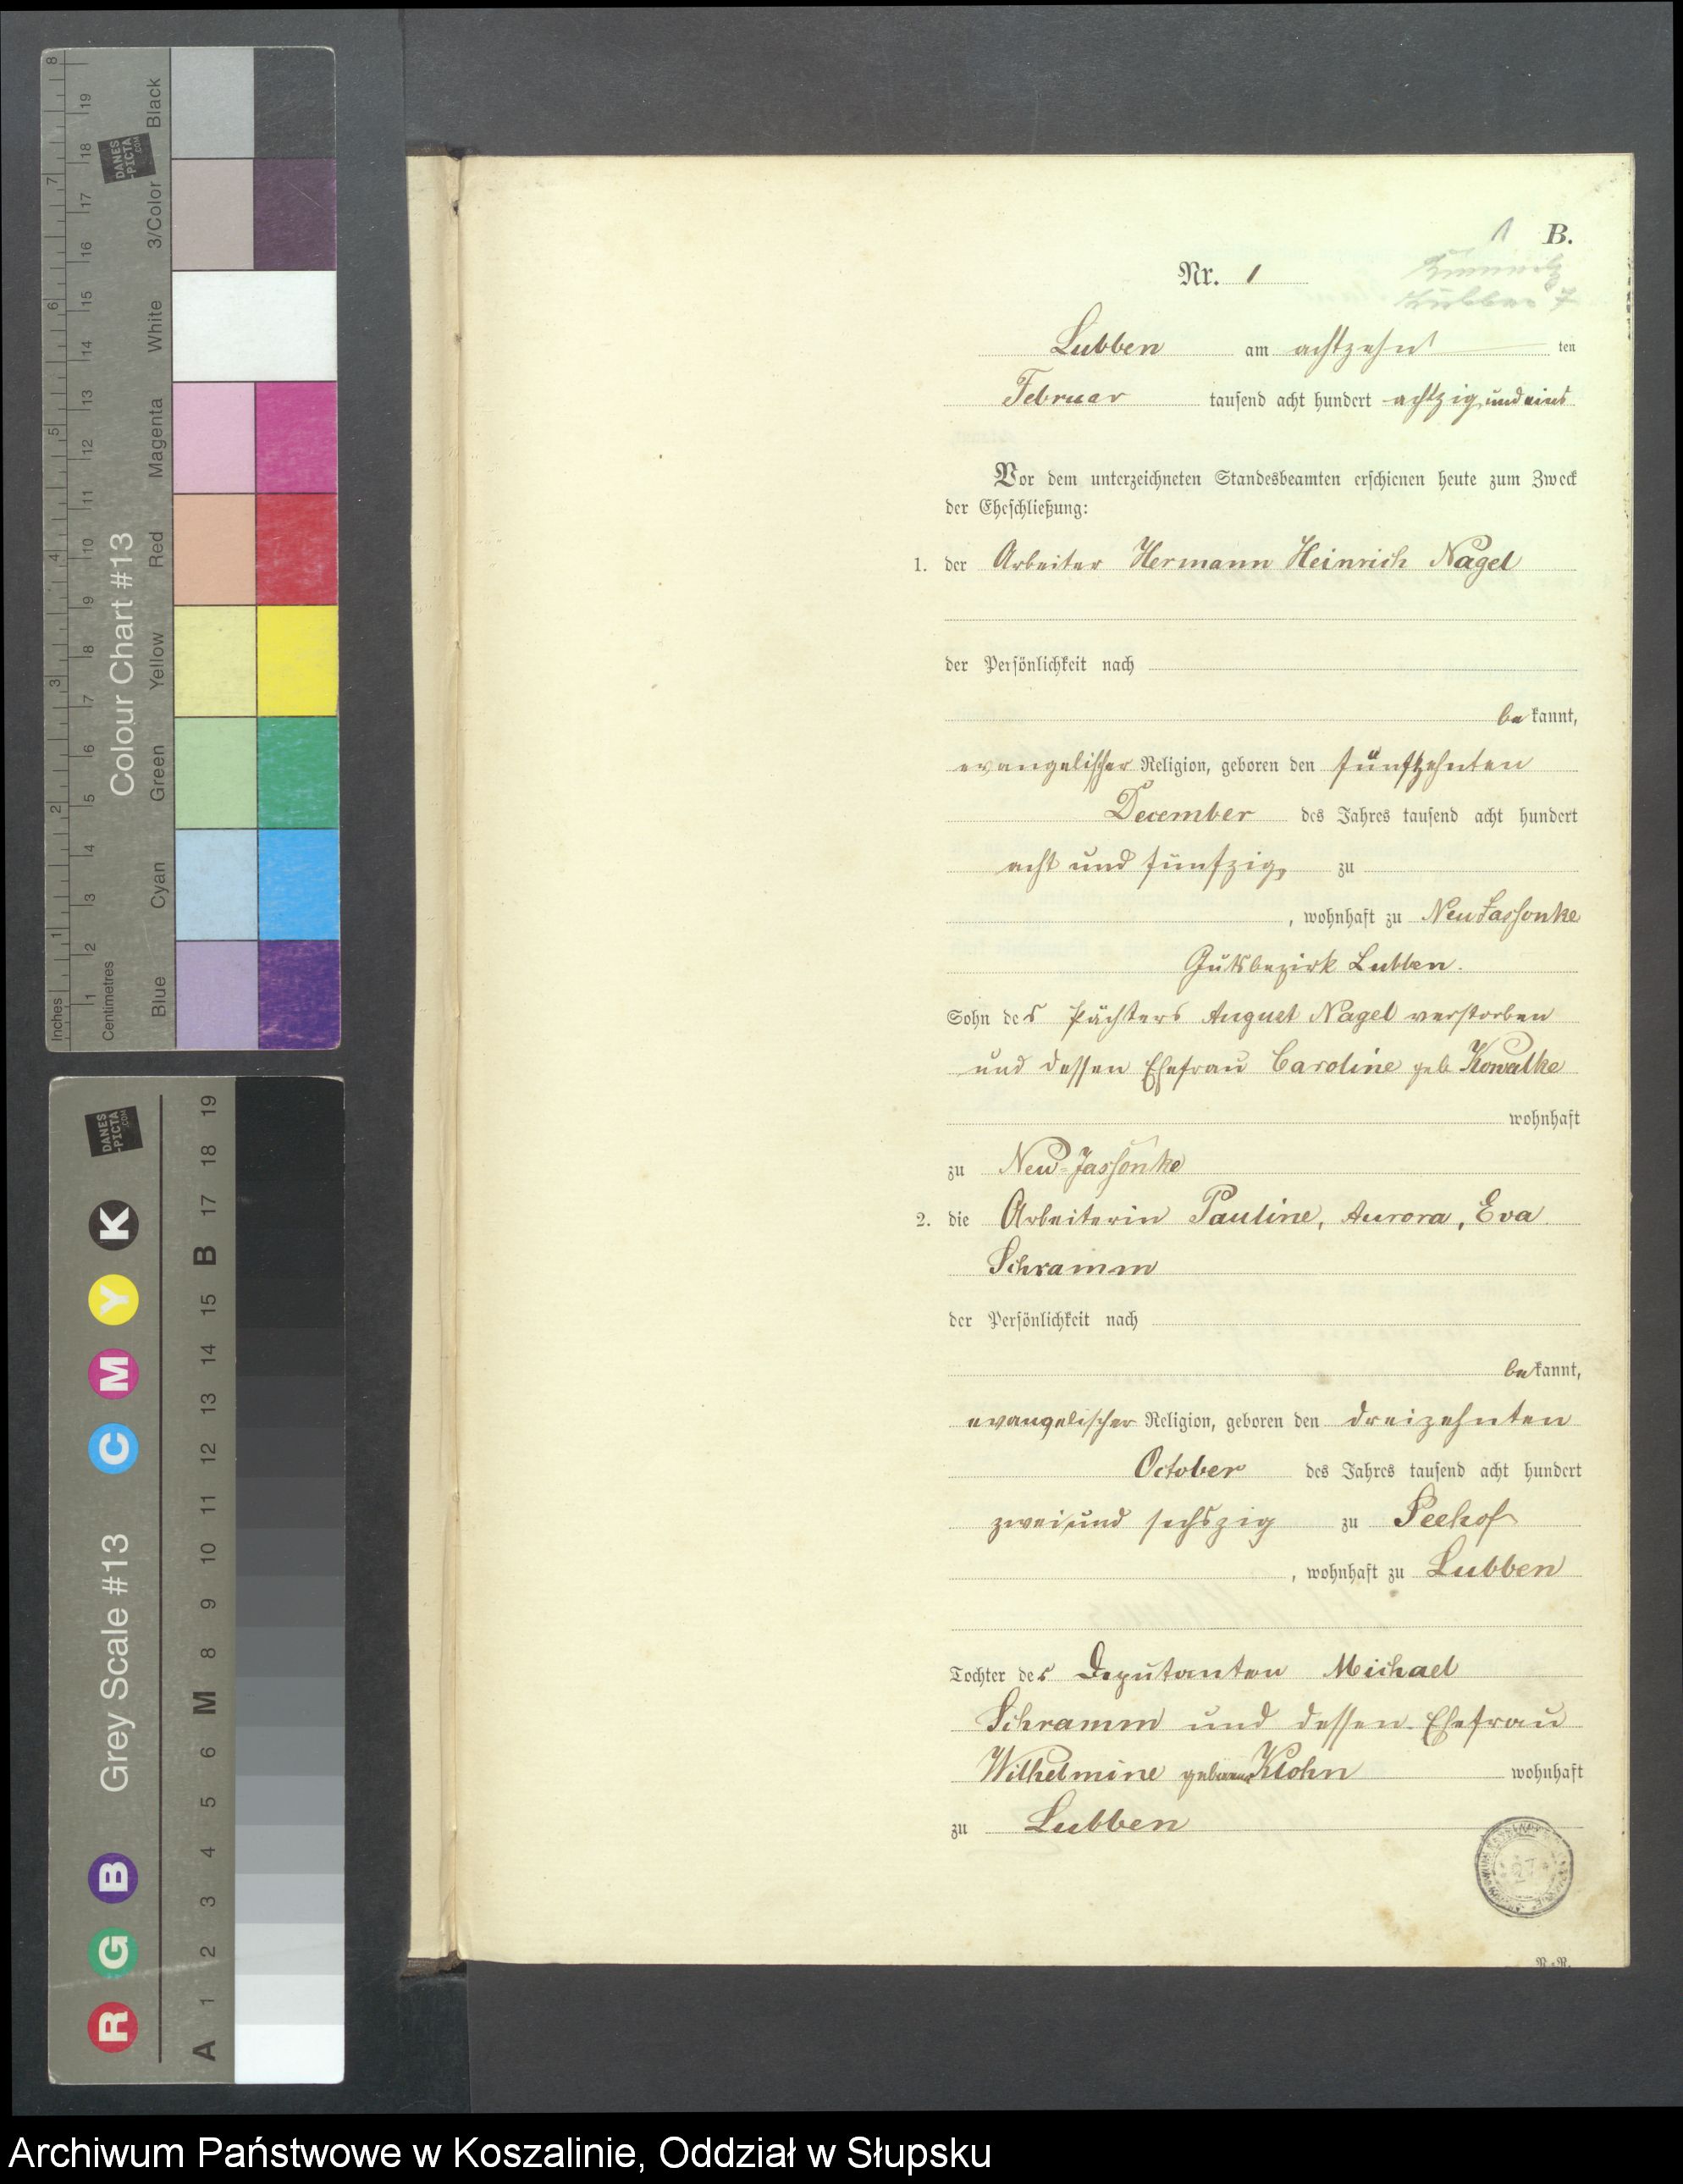 B.
Nr. 1
Lubben am achtzehn ten
Februar tausend acht hundert achtzig und eins
Vor dem unterzeichneten Standesbeamten erschienen heute zum Zweck
der Eheschließung:
1. der Arbeiter Hermann Heinrich Nagel
der Persönlichkeit nach
be kannt,
evangelischer Religion, geboren den fünfzehnten
December des Jahres tausend acht hundert
acht und fünfzig, zu
, wohnhaft zu Neu Jassonke
Gutsbezirk Lubben.
Sohn des Pächters August Nagel verstorben
und dessen Ehefrau Caroline geb Kowalke
wohnhaft
zu Neu-Jassonke
2. die Arbeiterin Pauline, Aurora, Eva
Schramm
der Persönlichkeit nach
be kannt,
evangelischer Religion, geboren den dreizehnten
October des Jahres tausend acht hundert
zwei und sechszig zu Seehof
, wohnhaft zu Lubben
Tochter des Deputanten Michael
Schramm und dessen Ehefrau
Wilhelmine geborene Klohn wohnhaft
zu Lubben
Inches
Centimetres
Colour Chart #13
Blue Cyan Green Yellow Red Magenta White 3/Color Black
DANES
-PICTA
.COM
Grey Scale #13
R G B C M Y K
A 1 2 3 4 5 6 M 8 9 10 11 12 13 14 15 B 17 18 19
DANES
-PICTA
.COM
Archiwum Państwowe w Koszalinie, Oddział w Słupsku